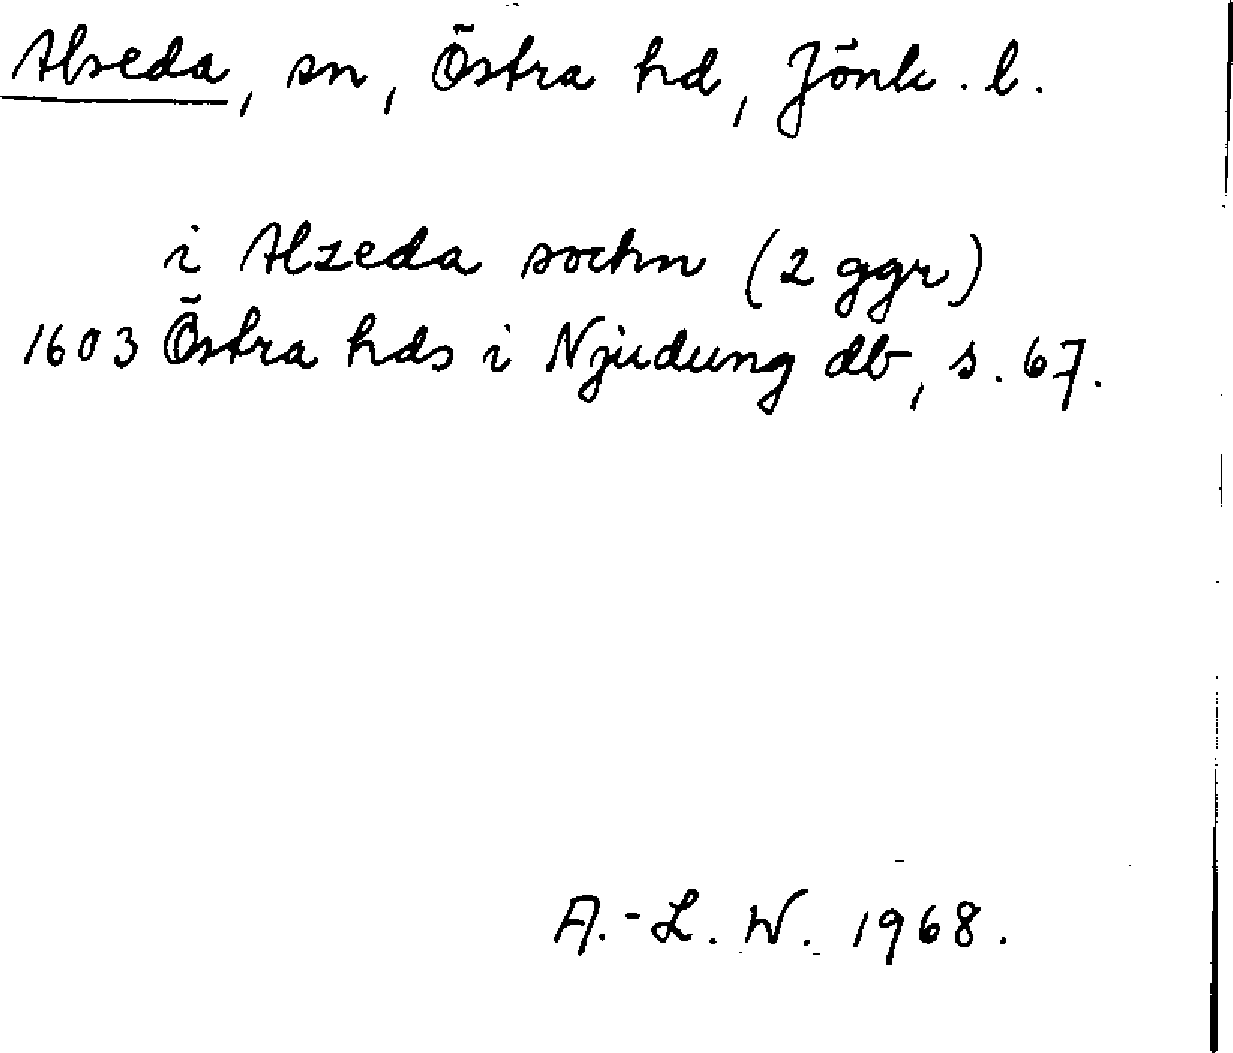 Alseda, sn, Östra hd, Jönk. l.
i Alzeda sochn (2 ggr)
1603 Östra hds i Njudung db, s. 67.
A.-L. W. 1968.